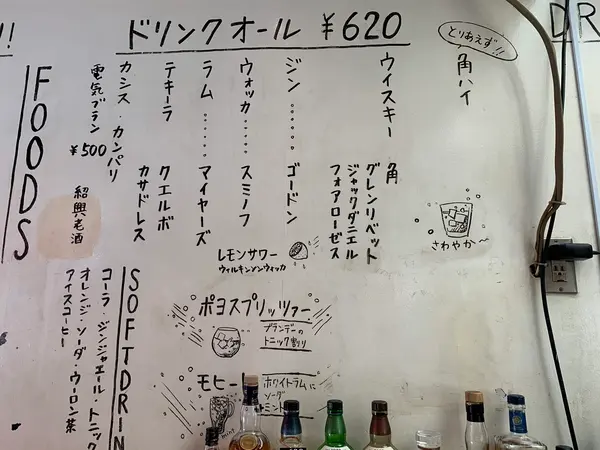 ドリンクオール ¥620
とりあえず!!
角ハイ
さわやか〜
ウイスキー 角
グレンリベット
ジャックダニエル
フォアローゼス
ジン……ゴードン
ウォッカ……スミノフ
ラム……マイヤーズ
テキーラ クエルボ
カサドレス
カシス・カンパリ
電気ブラン ¥500
紹興老酒
レモンサワー
ウィルキンソンウォッカ
ポヨスプリッツァー
ブランデーの
トニック割り
モヒー
ホワイトラムに
ソーダ
ミント
FOODS
SOFTDRIN
コーラ・ジンジャエール・トニック
オレンジ・ソーダ・ウーロン茶
アイスコーヒー
DR